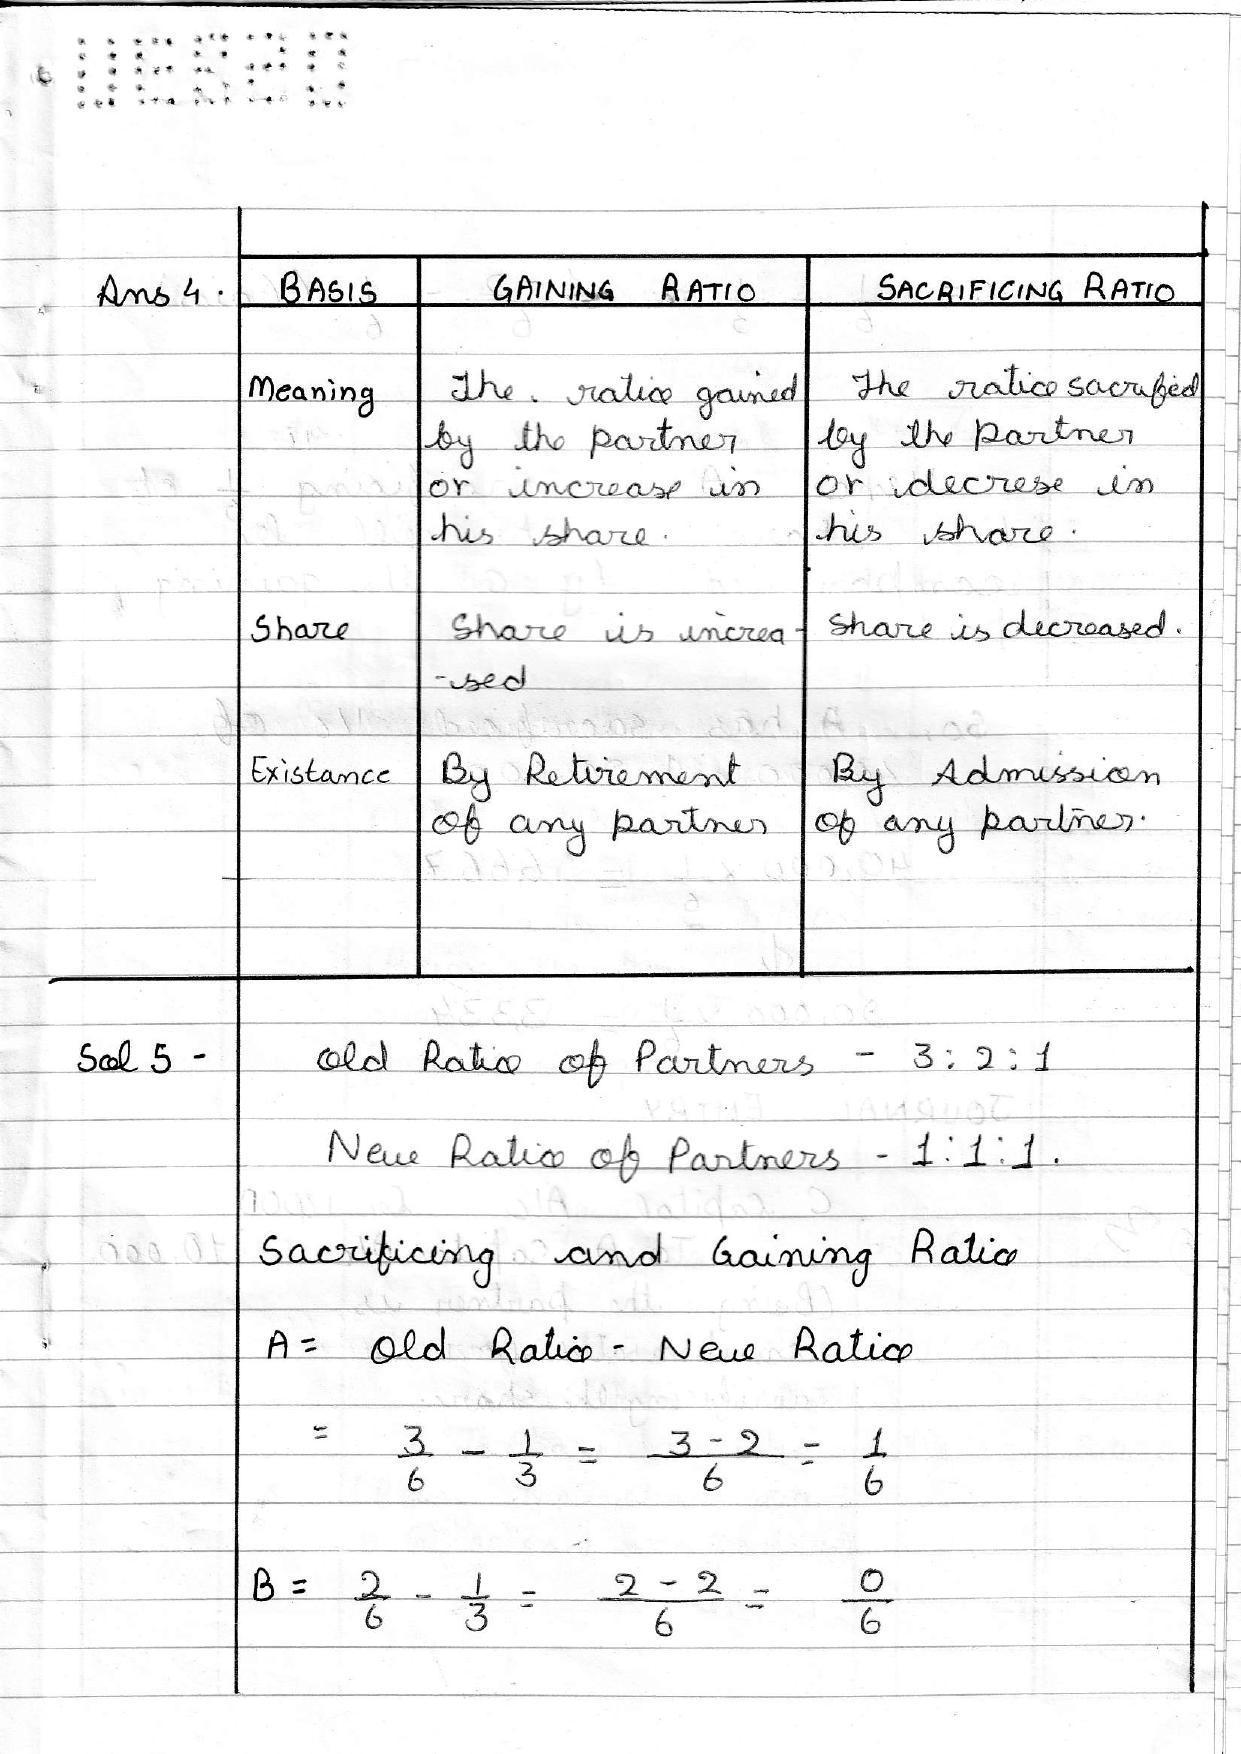 Ans 4. BASIS GAINING RATIO SACRIFICING RATIO
Meaning The ratio gained by the partner or increase in his share. The ratio sacrified by the partner or decrese in his share.
Share Share is increa-
-sed Share is decreased.
Existance By Retirement of any partner By Admission of any partner.
Sol 5 - Old Ratio of Partners - 3:2:1
New Ratio of Partners - 1:1:1.
Sacrificing and Gaining Ratio
A = Old Ratio - New Ratio
= 3/6 - 1/3 = 3-2/6 = 1/6
B = 2/6 - 1/3 = 2-2/6 = 0/6